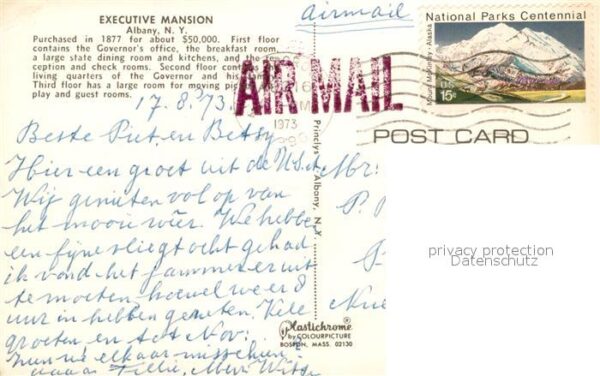 EXECUTIVE MANSION
Albany, N. Y.
Purchased in 1877 for about $50,000. First floor
contains the Governor's office, the breakfast room,
a large state dining room and kitchens, and the
ception and check rooms. Second floor
living quarters of the Governor and his
Third floor has a large room for moving
play and guest rooms.
Airmail
National Parks Centennial
Mount McKinley - Alaska
15c
AIR MAIL
1973
POST CARD
17.8.'73.
Beste Piet en Betsy
Hier een groet uit de U.S.
Wij genieten volop van
het mooie weer. We hebbe
een fijne vliegtocht gehad
ik vond het jammer er uit
te moeten hoewel we er 8
uur in hebben gezeten. Vele
groeten en tot Nov.
kunnen elkaar misschien
Mr.
P.
Princlys - Albany, N. Y.
Plastichrome®
by COLOURPICTURE
BOSTON, MASS. 02130
privacy protection
Datenschutz